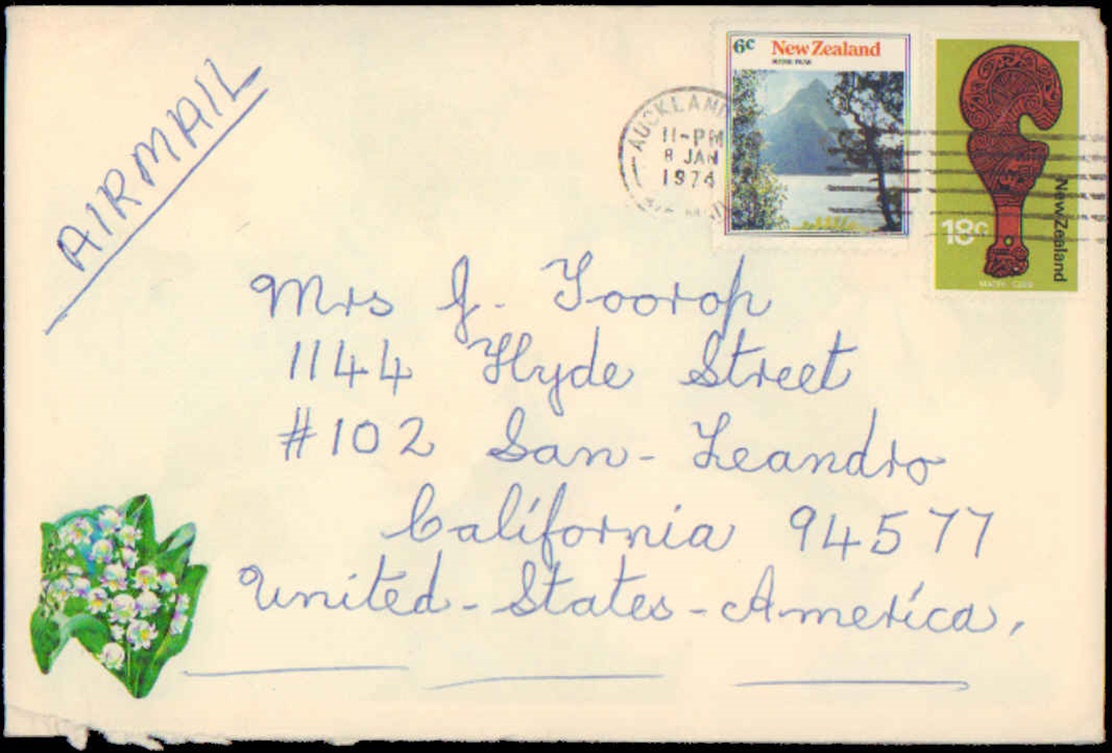 AIRMAIL
AUCKLAND
11-PM
8 JAN
1974
6c New Zealand
MITRE PEAK
18c
New Zealand
MAORI CLUB
Mrs J. Toorop
1144 Hyde Street
#102 San-Leandro
California 94577
United-States-America.